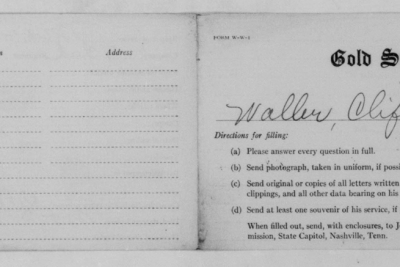 Address
FORM W-W-1
Gold S
Waller, Clif
Directions for filling:
(a) Please answer every question in full.
(b) Send photograph, taken in uniform, if possi
(c) Send original or copies of all letters written
clippings, and all other data bearing on his
(d) Send at least one souvenir of his service, if
When filled out, send, with enclosures, to J
mission, State Capitol, Nashville, Tenn.